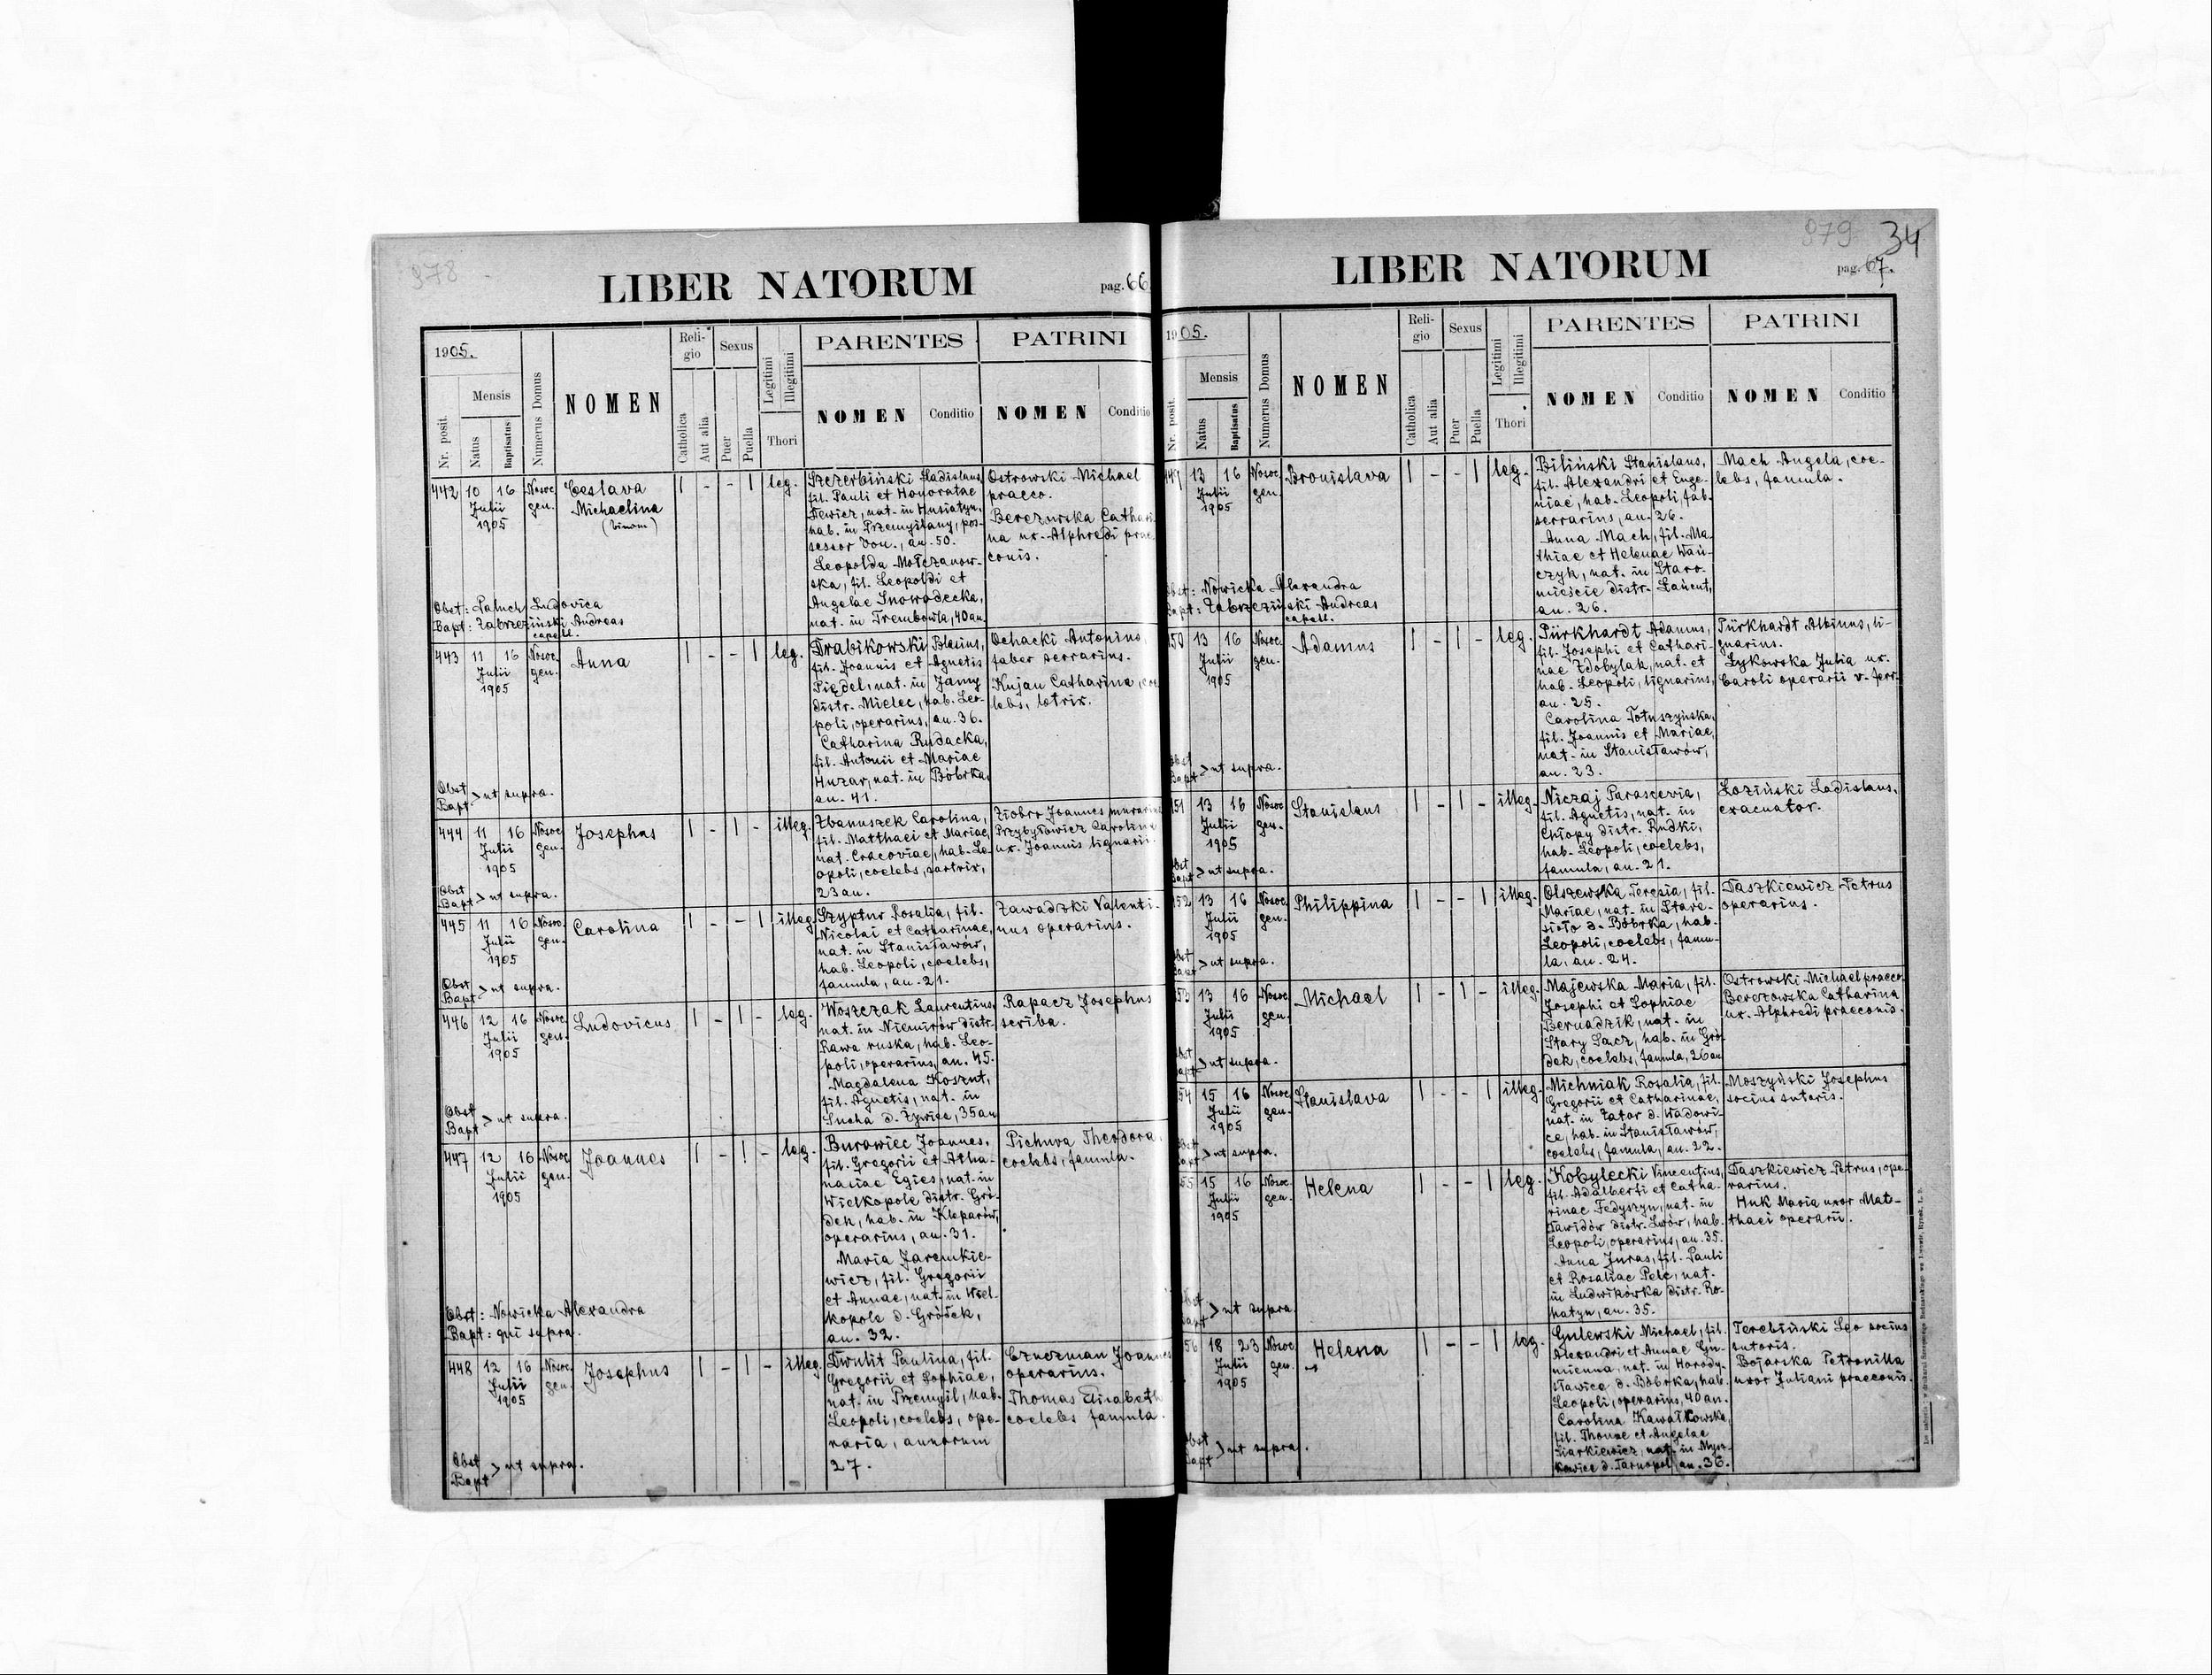 978
LIBER NATORUM
pag. 66
1905.
Nr. posit.
Mensis
Natus
Baptisatus
Numerus Domus
NOMEN
Religio
Catholica
Aut alia
Sexus
Puer
Puella
Legitimi
Illegitimi
Thori
PARENTES
NOMEN
Conditio
PATRINI
NOMEN
Conditio
442 10 16 Nosoc.
Julii gen.
1905
Ceslava
Michaelina
(binom)
| - - | leg.
Szczerbiński Ladislaus,
fil. Pauli et Honoratae
nat. in Husiatyn,
hab. in Przemyślany, pos-
sessor dom., an. 50.
Leopolda Mołczanow-
ska, fil. Leopoldi et
Angelae Snowadecka,
nat. in Trembowla, 40 an.
Ostrowski Michael
praeco.
Berezowska Cathari-
na ux. Alphredi prae-
conis.
Obst: Paluch Ludovica
Bapt: Zabrzeziński Andreas
capell.
443 11 16 Nosoc.
Julii gen.
1905
Anna
| - - | leg.
Drabikowski Blasius,
fil. Joannis et Agnetis
Piędel, nat. in Jamy
distr. Mielec, hab. Leo-
poli, operarius, an. 36.
Catharina Rudacka,
fil. Antonii et Mariae
Huzar, nat. in Bóbrka,
an. 41.
Ochacki Antonius,
faber serrarius.
Kujan Catharina, coe-
lebs, lotrix.
Obst
Bapt > ut supra.
444 11 16 Nosoc.
Julii gen.
1905
Josephus
| - | - illeg.
Zbanuszek Carolina,
fil. Matthaei et Mariae,
nat. Cracoviae, hab. Le-
opoli, coelebs, sartrix,
23 an.
Ziobro Joannes murarius
Przybyłowicz Carolina
ux. Joannis lignarii.
Obst
Bapt > ut supra.
445 11 16 Nosoc.
Julii gen.
1905
Carolina
| - - | illeg.
Szyptur Rosalia, fil.
Nicolai et Catharinae,
nat. in Stanisławów,
hab. Leopoli, coelebs,
famula, an. 21.
Zawadzki Valenti-
nus operarius.
Obst
Bapt > ut supra.
446 12 16 Nosoc.
Julii gen.
1905
Ludovicus
| - | - leg.
Woszczak Laurentius,
nat. in Niemirów distr.
Rawa ruska, hab. Leo-
poli, operarius, an. 45.
Magdalena Koszut,
fil. Agnetis, nat. in
Sucha d. Żywiec, 35 an
Rapacz Josephus
scriba.
Obst
Bapt > ut supra.
447 12 16 Nosoc.
Julii gen.
1905
Joannes
| - | - leg.
Burowiec Joannes,
fil. Gregorii et Atha-
nasiae Egies, nat. in
Wielkopole distr. Gró-
dek, hab. in Kleparów,
operarius, an. 31.
Maria Jaremkie-
wicz, fil. Gregorii
et Annae, nat. in Wiel-
kopole d. Gródek,
an. 32.
Pichura Theodora,
coelebs, famula.
Obst: Nowicka Alexandra
Bapt: qui supra.
448 12 16 Nosoc.
Julii gen.
1905
Josephus
| - | - illeg.
Dwulit Paulina, fil.
Gregorii et Sophiae,
nat. in Przemyśl, hab.
Leopoli, coelebs, ope-
raria, annorum
27.
Czuczman Joannes
operarius.
Thomas Elisabeth
coelebs famula.
Obst
Bapt > ut supra.
979
34
LIBER NATORUM
pag. 67.
1905.
Nr. posit.
Mensis
Natus
Baptisatus
Numerus Domus
NOMEN
Religio
Catholica
Aut alia
Sexus
Puer
Puella
Legitimi
Illegitimi
Thori
PARENTES
NOMEN
Conditio
PATRINI
NOMEN
Conditio
13 16 Nosoc.
Julii gen.
1905
Bronislava
| - - | leg.
Biliński Stanislaus,
fil. Alexandri et Euge-
niae, hab. Leopoli, fab.
serrarius, an. 26.
Anna Mach, fil. Ma-
thiae et Helenae Wań-
czyk, nat. in Staro-
mieście distr. Łańcut,
an. 26.
Mach Angela, coe-
lebs, famula.
Obst: Nowicka Alexandra
Bapt: Zabrzeziński Andreas
capell.
450 13 16 Nosoc.
Julii gen.
1905
Adamus
| - | - leg.
Pürkhardt Adamus,
fil. Josephi et Cathari-
nae Zdobylak, nat. et
hab. Leopoli, lignarius,
an. 25.
Carolina Potuszyńska,
fil. Joannis et Mariae,
nat. in Stanisławów,
an. 23.
Pürkhardt Albinus, li-
gnarius.
Łykowska Julia ux.
Caroli operarii v. ferr.
Obst
Bapt > ut supra.
451 13 16 Nosoc.
Julii gen.
1905
Stanislaus
| - | - illeg.
Niczaj Parascevia,
fil. Agnetis, nat. in
Chłopy distr. Rudki,
hab. Leopoli, coelebs,
famula, an. 21.
Łoziński Ladislaus,
exacuator.
Obst
Bapt > ut supra.
452 13 16 Nosoc.
Julii gen.
1905
Philippina
| - - | illeg.
Olszewska Teresia, fil.
Mariae, nat. in Stare-
sioło d. Bóbrka, hab.
Leopoli, coelebs, famu-
la, an. 24.
Daszkiewicz Petrus
operarius.
Obst
Bapt > ut supra.
453 13 16 Nosoc.
Julii gen.
1905
Michael
| - | - illeg.
Majewska Maria, fil.
Josephi et Sophiae
Bernadzik, nat. in
Stary Sącz, hab. in Gró-
dek, coelebs, famula, 26 an
Ostrowski Michael praeco.
Berezowska Catharina
ux. Alphredi praeconis.
Obst
Bapt > ut supra.
454 15 16 Nosoc.
Julii gen.
1905
Stanislava
| - - | illeg.
Michniak Rosalia, fil.
Gregorii et Catharinae,
nat. in Zator d. Wadowi-
ce, hab. in Stanisławów,
coelebs, famula, an. 22.
Moszyński Josephus
socius sutoris.
Obst
Bapt > ut supra.
455 15 16 Nosoc.
Julii gen.
1905
Helena
| - - | leg.
Kobylecki Vincentius,
fil. Adalberti et Catha-
rinae Fedyszyn, nat. in
Dawidów distr. Lwów, hab.
Leopoli, operarius, an. 35.
Anna Juras, fil. Pauli
et Rosaliae Pelc, nat.
in Ludwikówka distr. Ro-
hatyn, an. 35.
Daszkiewicz Petrus, ope-
rarius.
Huk Maria uxor Mat-
thaei operarii.
Obst
Bapt > ut supra
456 18 23 Nosoc.
Julii gen.
1905
Helena
| - - | leg.
Gulewski Michael, fil.
Alexandri et Annae Gu-
mienna, nat. in Horody-
sławice d. Bóbrka, hab.
Leopoli, operarius, 40 an.
Carolina Kawałkowska,
fil. Thomae et Angelae
nat. in Mysz-
kowice d. Tarnopol, an. 36.
Terebiński Leo socius
sutoris.
Bojarska Petronilla
uxor Juliani praeconis.
Obst
Bapt > ut supra.